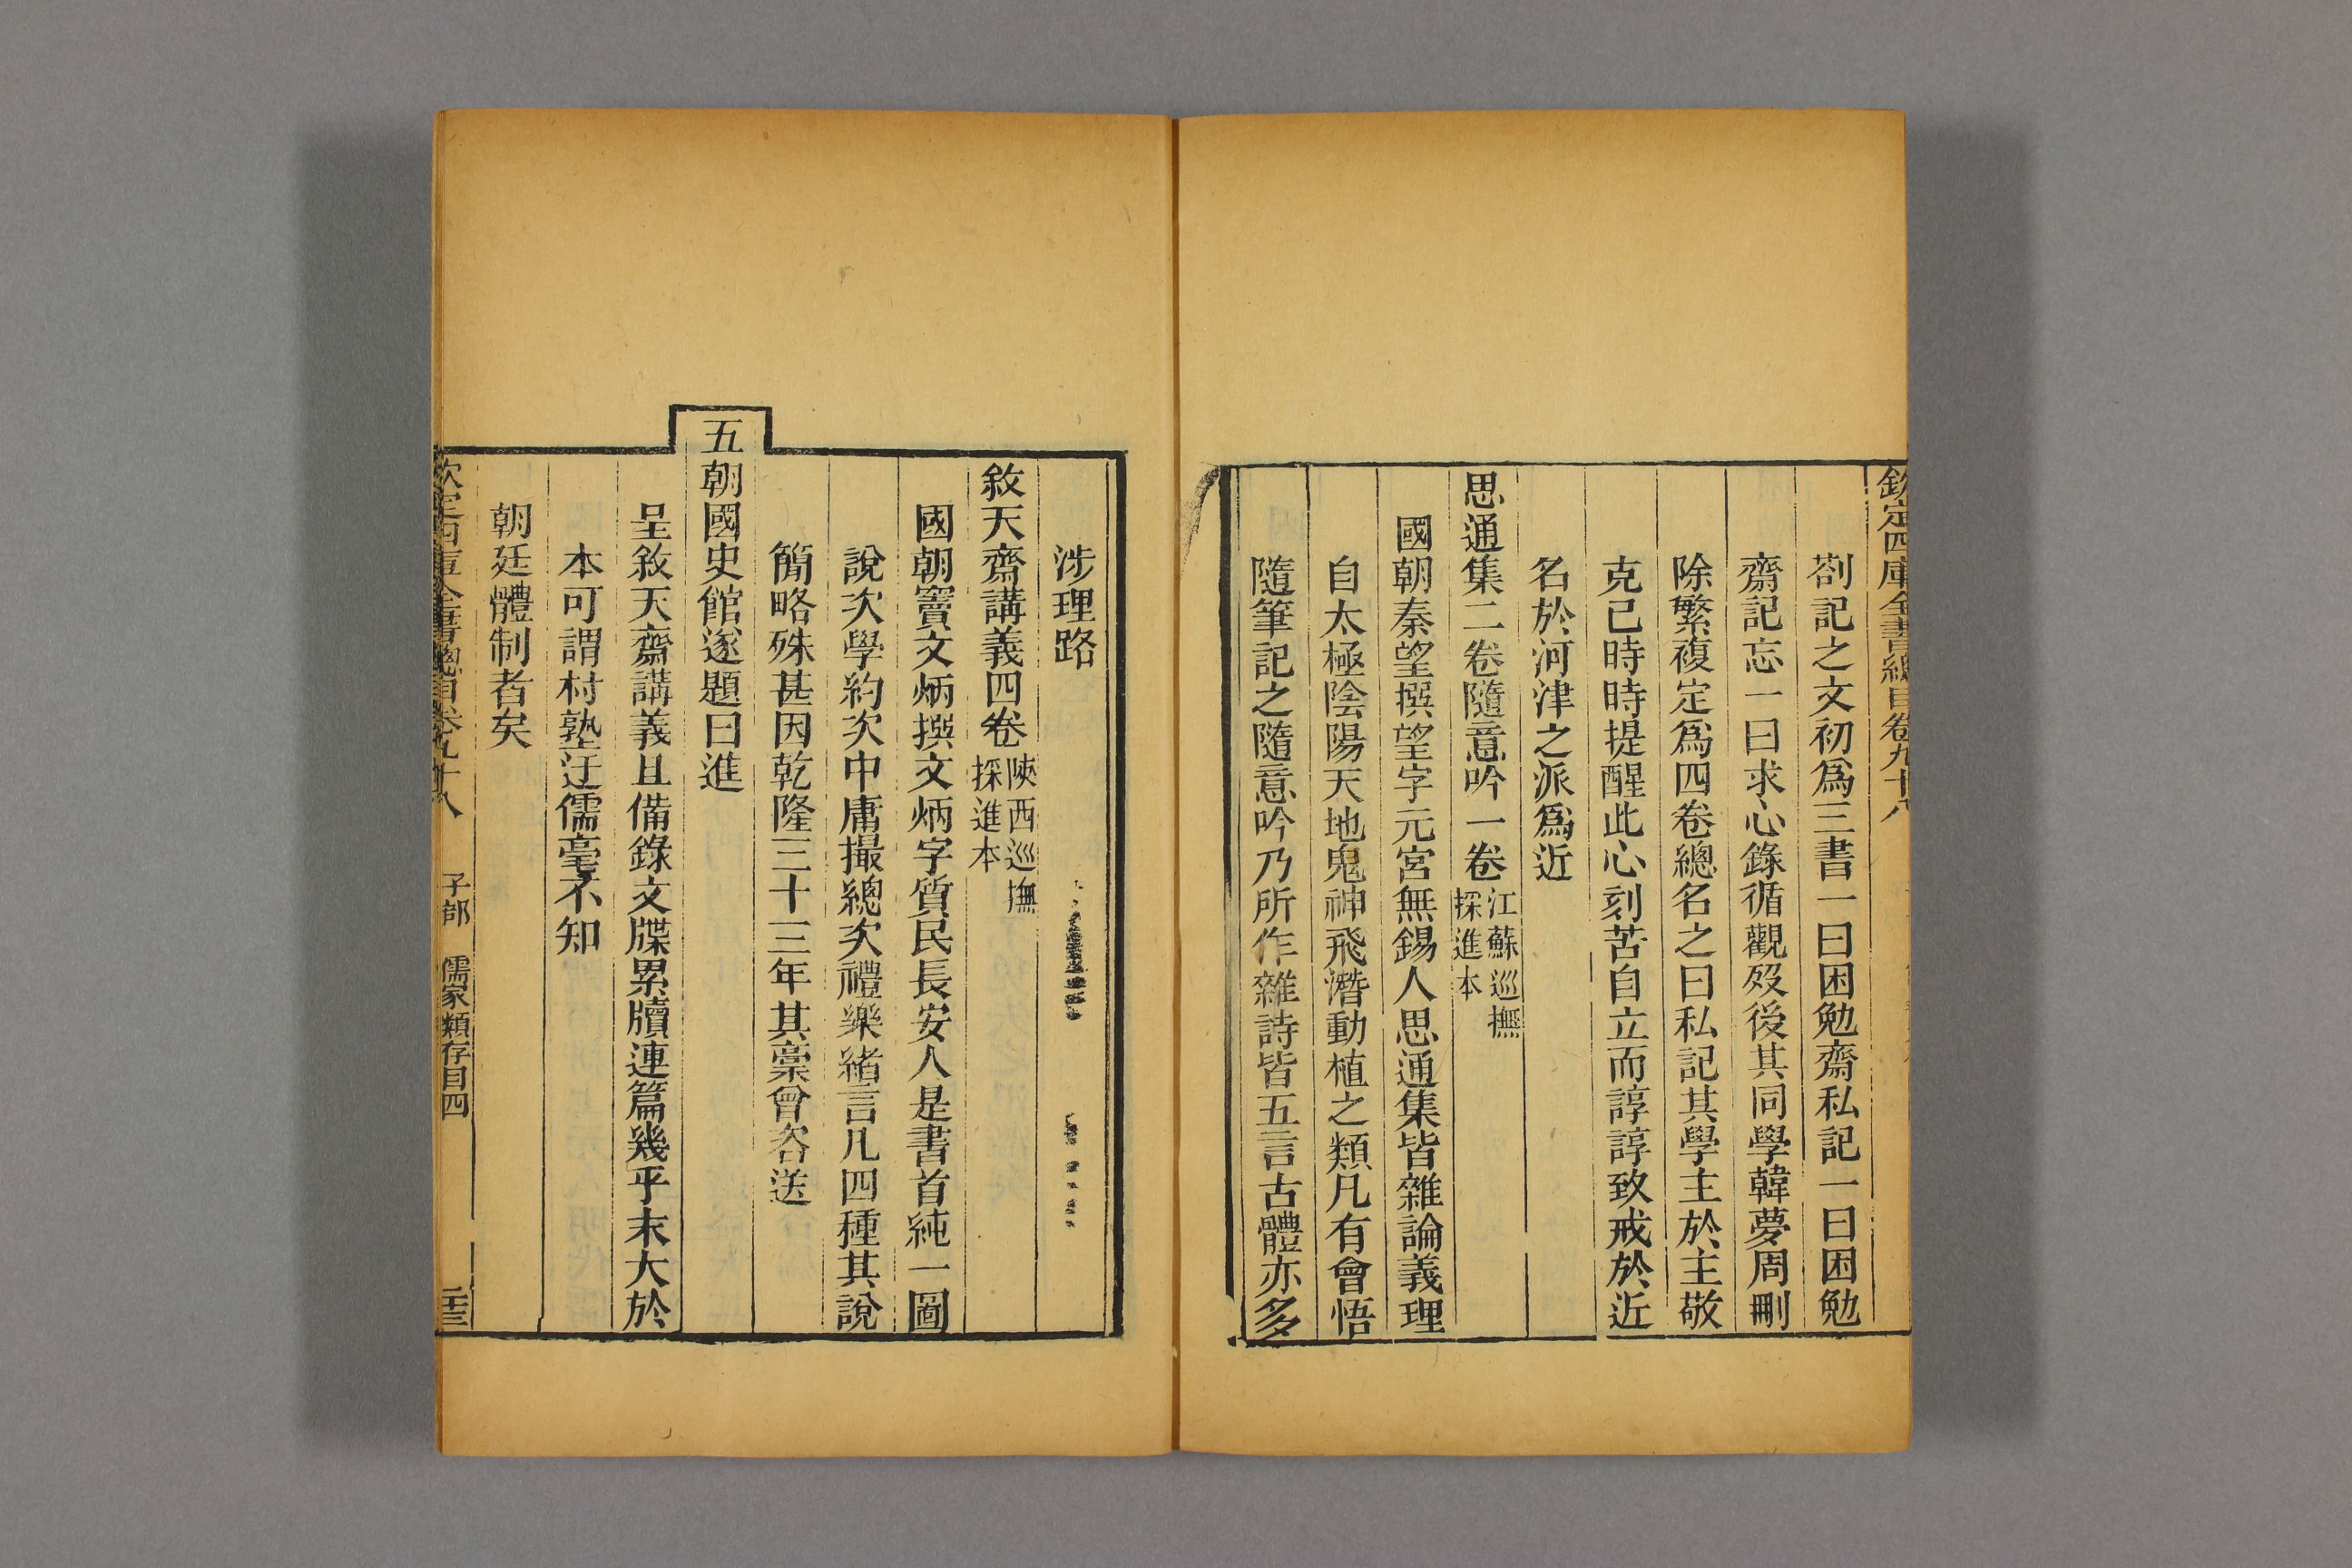 欽定四庫全書總目卷九十八
劄記之文初爲三書一曰困勉齋私記一曰困勉
齋記忘一曰求心錄循觀歿後其同學韓夢周刪
除繁複定爲四卷總名之曰私記其學主於主敬
克已時時提醒此心刻苦自立而諄諄致戒於近
名於河津之派爲近
思通集二卷隨意吟一卷江蘇巡撫採進本
國朝秦望撰望字元宮無錫人思通集皆雜論義理
自太極陰陽天地鬼神飛潛動植之類凡有會悟
隨筆記之隨意吟乃所作雜詩皆五言古體亦多
涉理路
敘天齋講義四卷陝西巡撫採進本
國朝竇文炳撰文炳字質民長安人是書首純一圖
說次學約次中庸撮總次禮樂緒言凡四種其說
簡略殊甚因乾隆三十三年其稾曾咨送
五朝國史館遂題曰進
呈敘天齋講義且備錄文牒累牘連篇幾乎末大於
本可謂村塾迂儒毫不知
朝廷體制者矣
欽定四庫全書總目卷九十八 子部 儒家類存目四